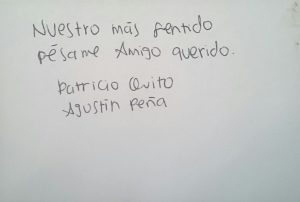 Nuestro más sentido
pésame Amigo querido.
Patricio Quito
Agustín Peña